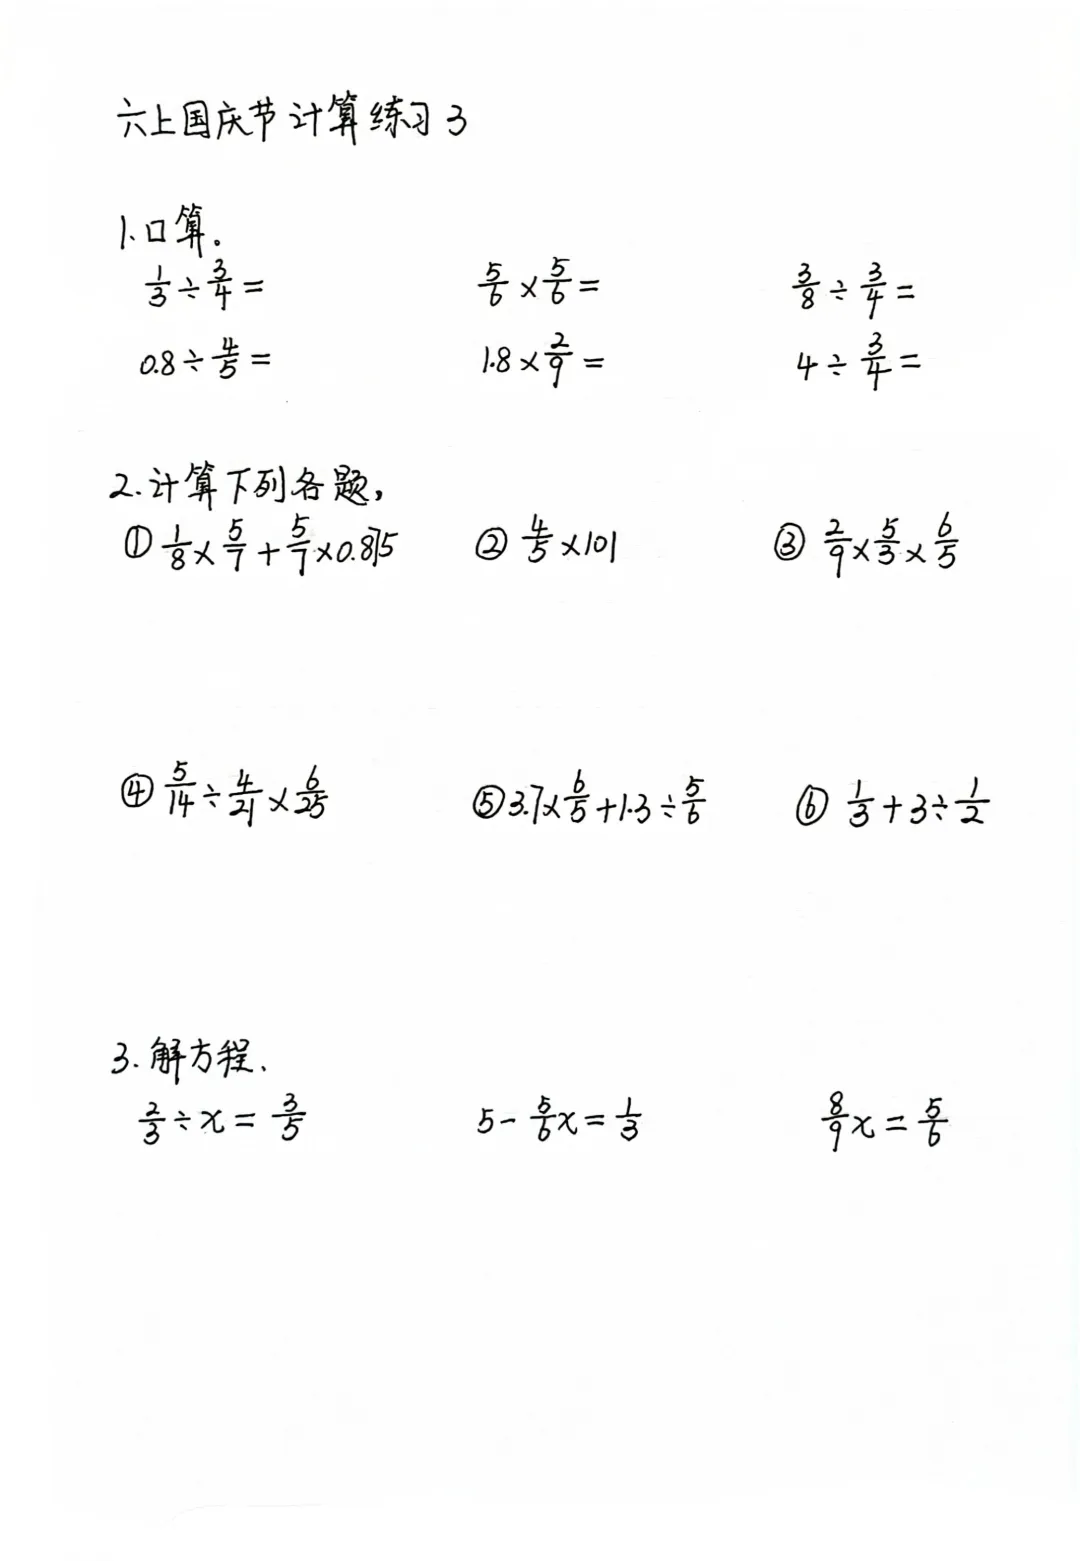 六上国庆节计算练习3
1.口算。
1/3÷3/4= 5/6×5/6= 3/8÷3/4=
0.8÷4/5= 1.8×2/9= 4÷3/4=
2.计算下列各题,
①1/8×5/7+5/7×0.875 ②4/5×101 ③2/9×5/3×6/5
④5/14÷4/21×6/25 ⑤3.7×6/5+1.3÷5/6 ⑥1/3+3÷1/2
3.解方程、
2/3÷x=3/5 5-5/6x=1/3 8/9x=5/6